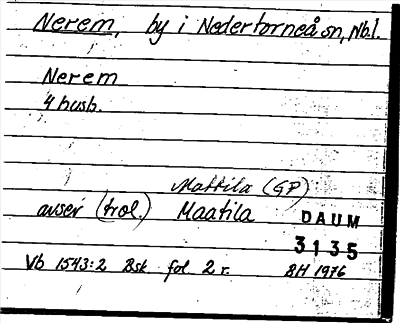 Nerem, by i Nedertorneå sn, Nb.l.
Nerem
4 husb.
Mattila (GP)
avser (trol.) Maatila
DAUM
3135
Vb 1543:2 Bsk fol 2 r. BH 1976